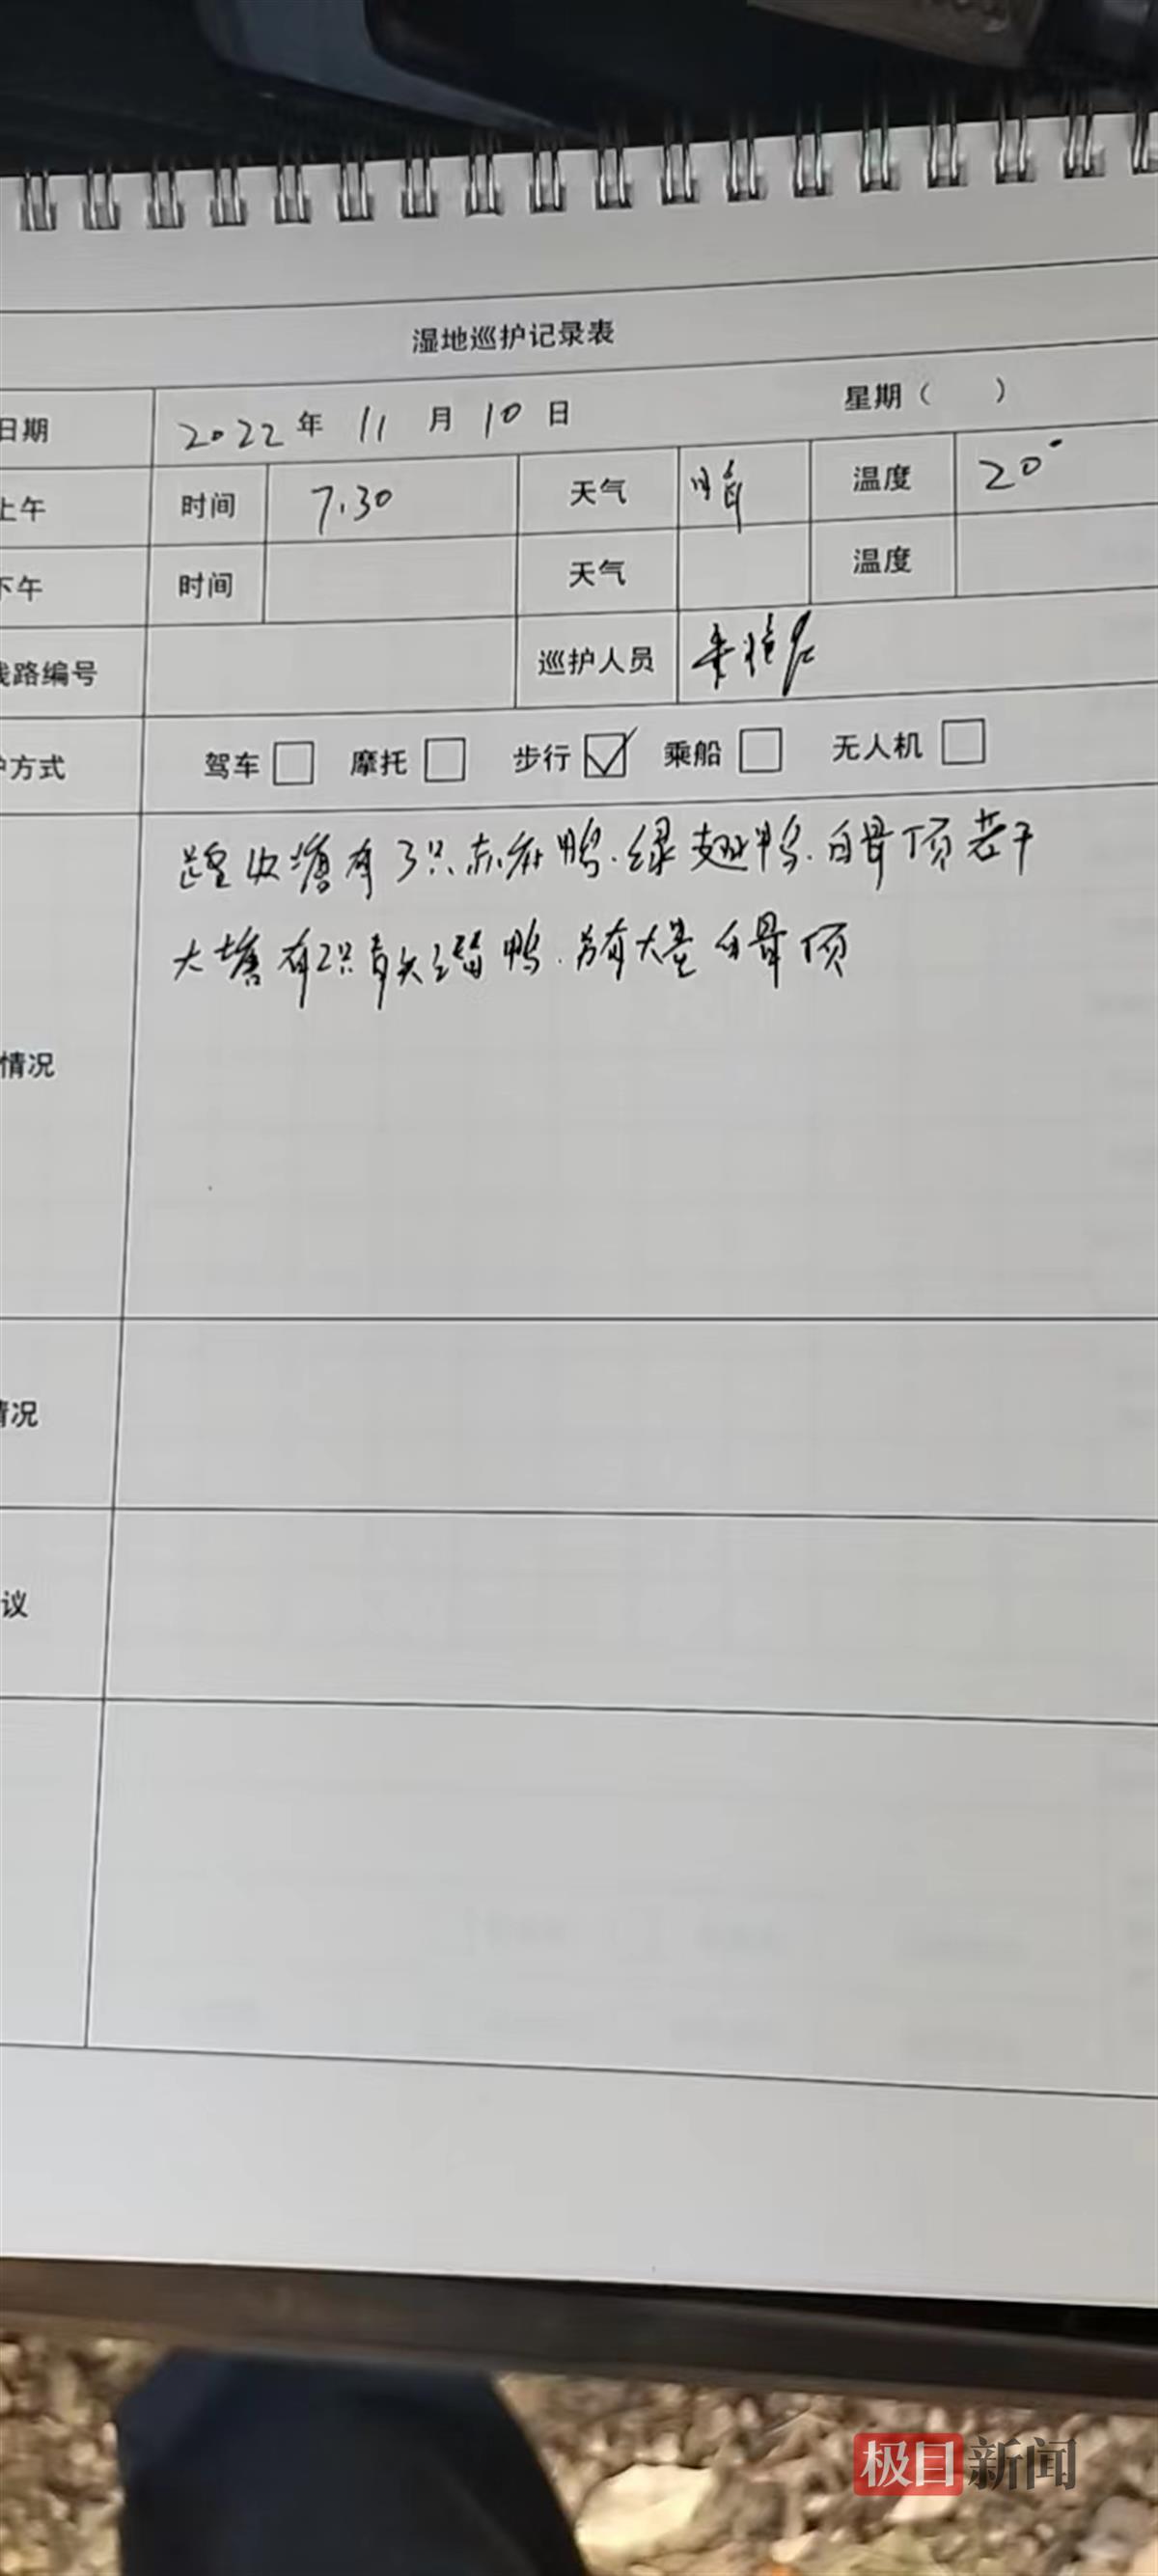 湿地巡护记录表
日期 2022年 11月 10日 星期（ ）
上午 时间 7.30 天气 晴 温度 20°
下午 时间 天气 温度
线路编号 巡护人员
护方式 驾车 摩托 步行 ☑ 乘船 无人机
塘有3只赤麻鸭.绿翅鸭.白骨顶若干
大塘有2只青头潜鸭.另有大量白骨顶
情况
情况
议
极目新闻